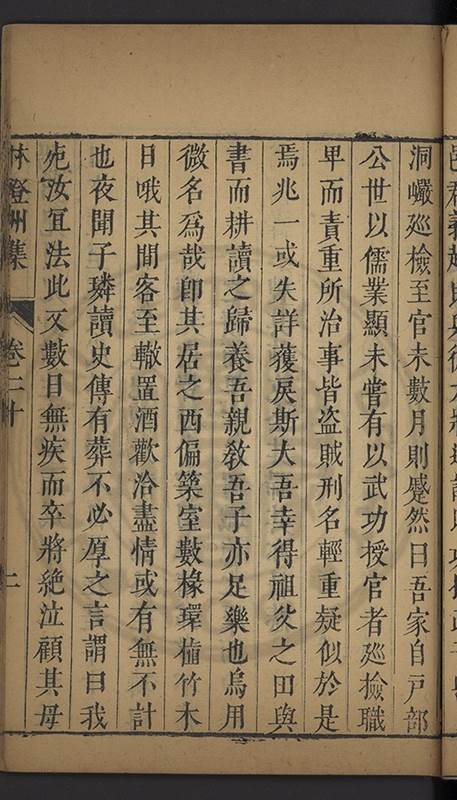 洞巖廵檢至官未數月則蹙然曰吾家自戸部
公世以儒業顯未嘗有以武功授官者廵撿職
卑而責重所治事皆盗賊刑名輕重疑似於是
焉兆一或失詳獲戾斯大吾幸得祖父之田與
書而耕讀之歸養吾親敎吾子亦足樂也烏用
微名爲哉卽其居之西偏築室數椽環植竹木
日哦其間客至轍置酒歡洽盡情或有無不計
也夜聞子璘讀史傳有葬不必厚之言謂曰我
死汝冝法此又數日無疾而卒將絶泣顧其母
林登州集 卷二十 二